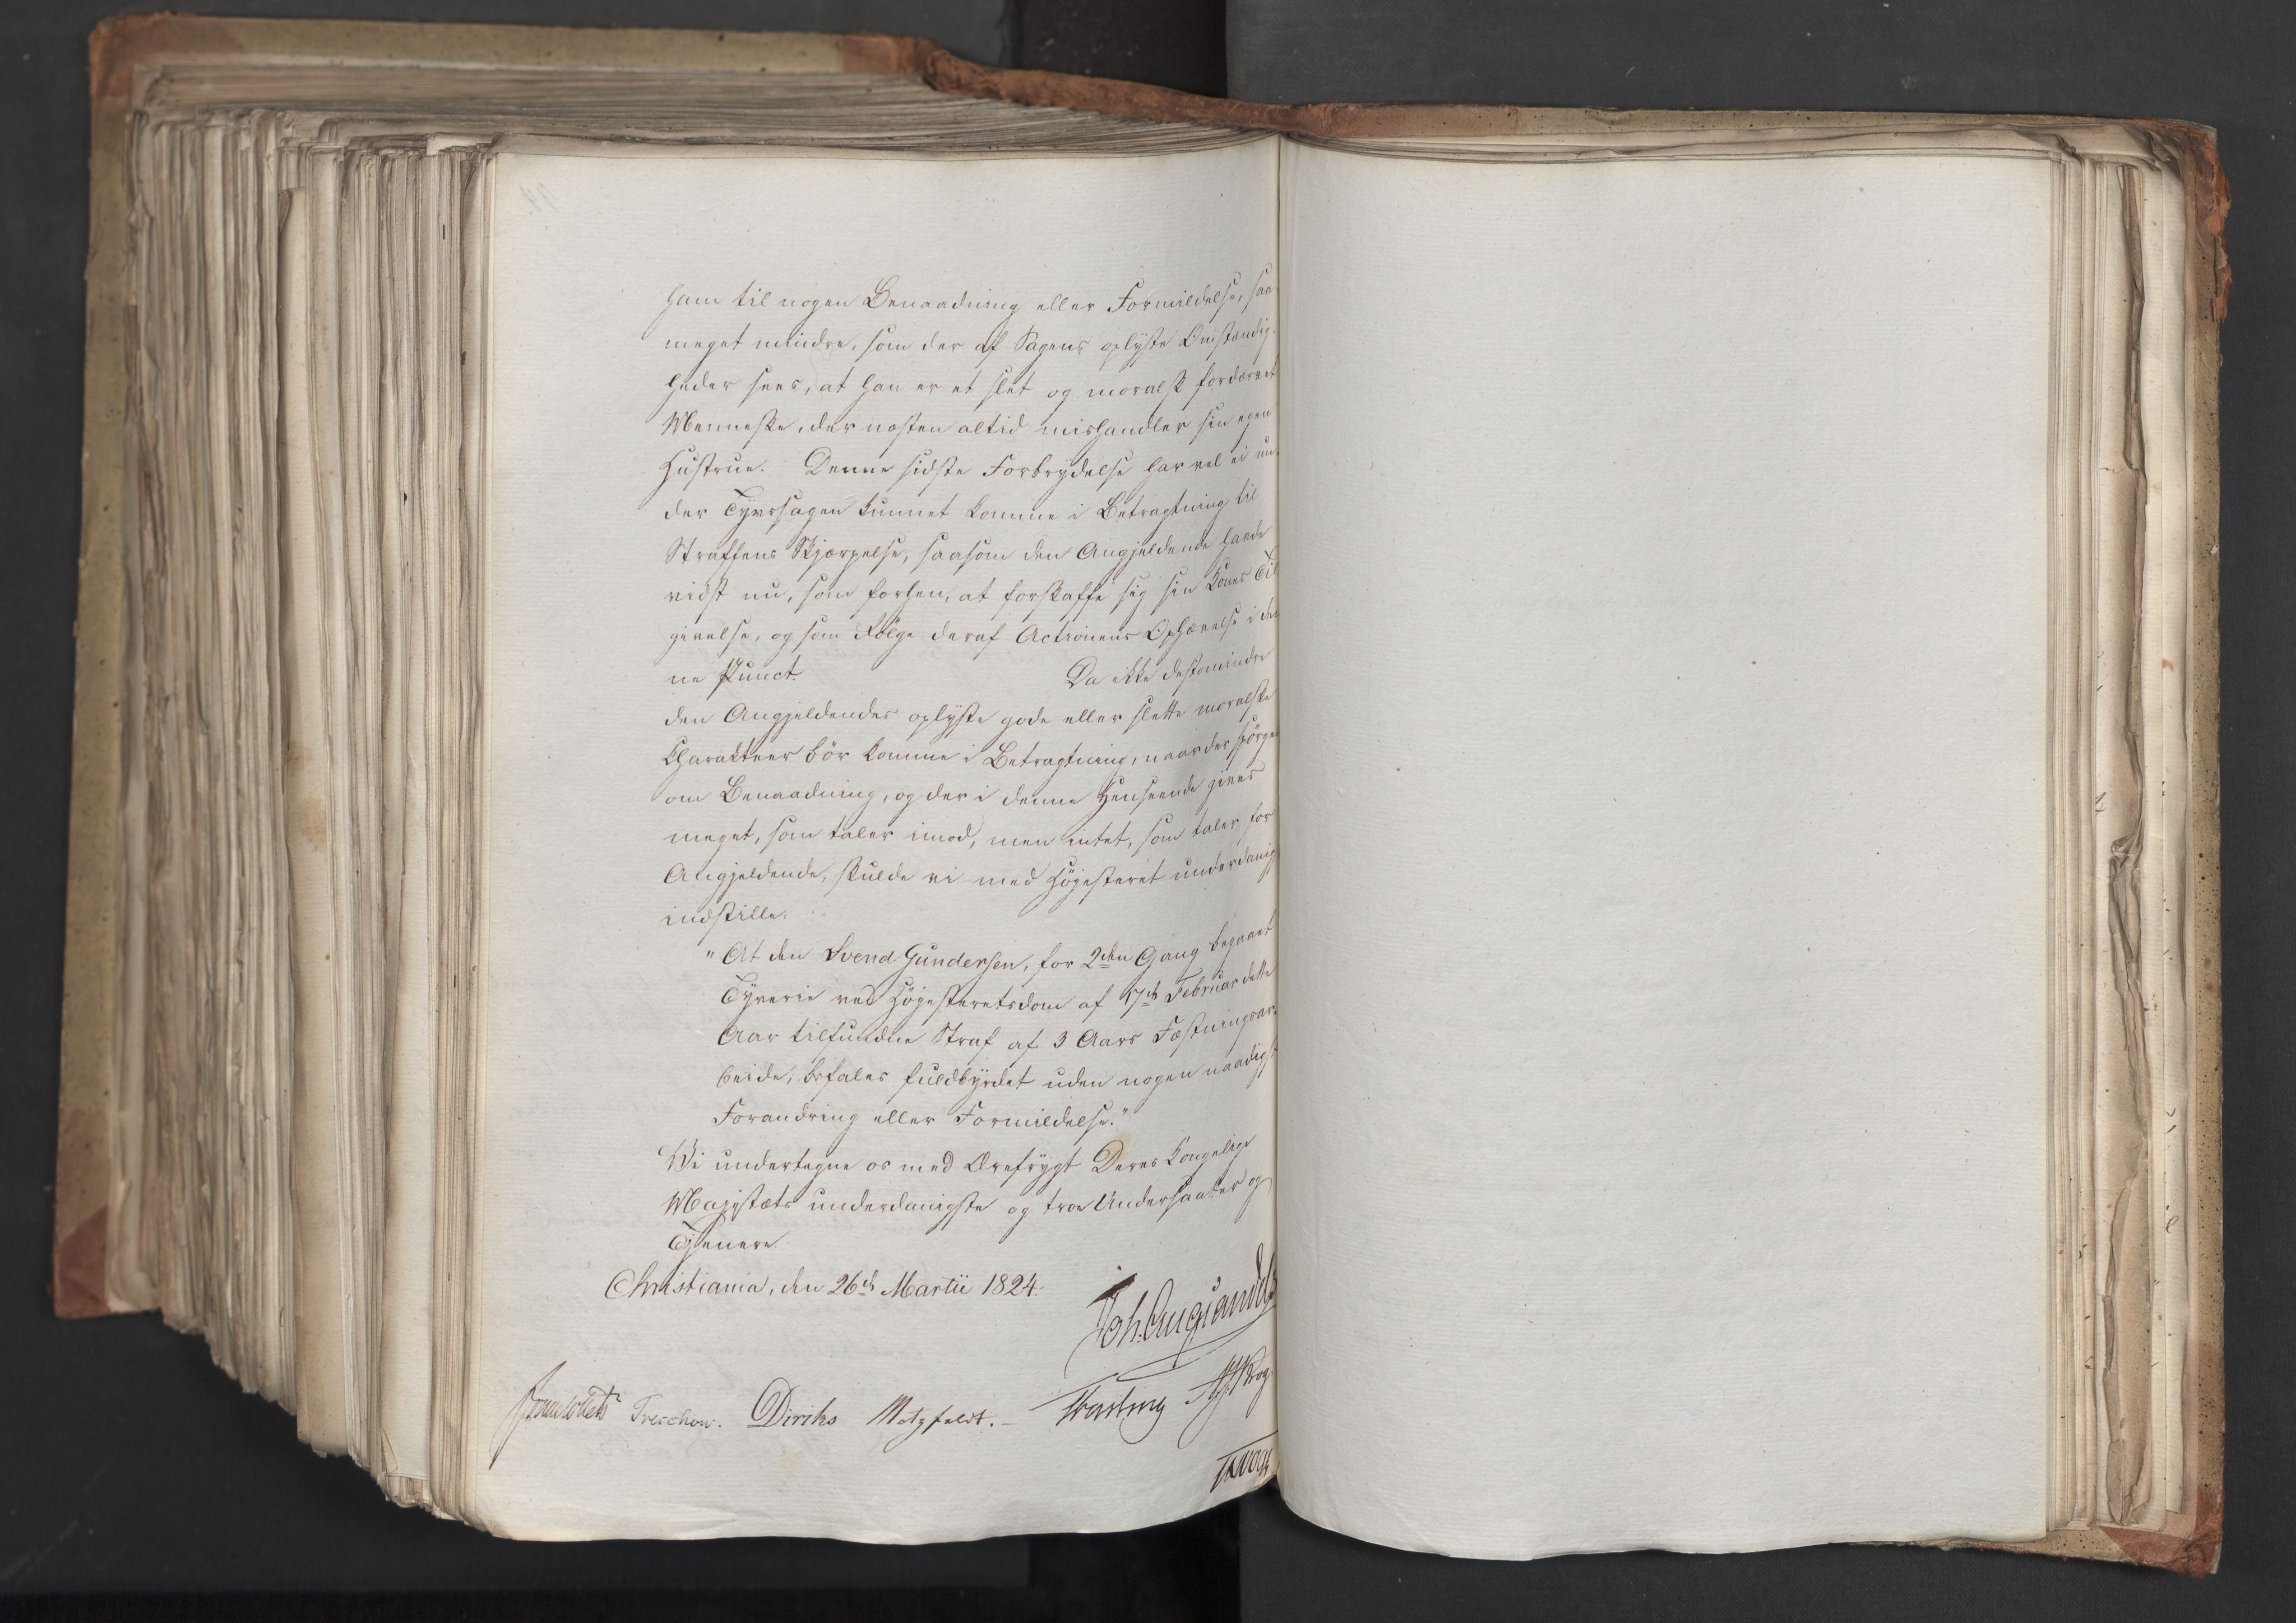 ham til nogen Benaadning eller Formildelse, saa
meget mindre, som der af Sagens oplyste Omstændig-
heder sees, at han er et slet og moralsk fordærvet
Menneske, der næsten altid mishandler sin egen
Hustrue. Denne sidste Forbrydelse har vel ei un-
der Tyvssagen kunnet komme i Betragtning til
Straffens Skjærpelse, saasom den Angjeldende havde
vidst nu, som forhen, at forskaffe sig sin Kones Til
givelse, og som Følge deraf Actionens Ophævelse i den
ne Punct. Da ikke destomindre
den Angjeldendes oplyste gode eller slette moralske
Charakteer bör komme i Betragtning, naar der spörges
om Benaadning, og der i denne Henseende gives
meget, som taler imod, men intet, som taler for
Angjeldende, skulde vi med Höjesteret underdanigst
indstille:
"At den Svend Gundersen, for 2den Gang begaaet
Tyverie ved Höjesteretsdom af 17de Februar dette
Aar tilfundne Straf af 3 Aars Fæstningsar-
beide, befales fuldbyrdet uden nogen naadigst
Forandring eller Formildelse."
Vi undertegne os med Ærefrygt Deres Kongelige
Majestæts underdanigste og troe Undersaatter og
Tjenere
Christiania, den 26de Martii 1824.
Joh. Aug. Sandels
Treschow. Diriks Motzfeldt. Fasting Krog
Vogt